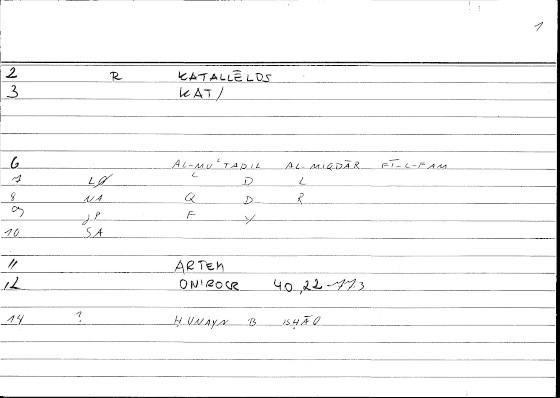 1
2 R KATALLĒLOS
3 KAT/
6 AL-MUʿTADIL AL-MIQDĀR FĪ-L-FAM
7 LØ ʿ D L
8 NA Q D R
9 JP F Y
10 SA
11 ARTEM
12 ONIROCR 40,22-11.3
14 ? ḤUNAYN B ISḤĀQ